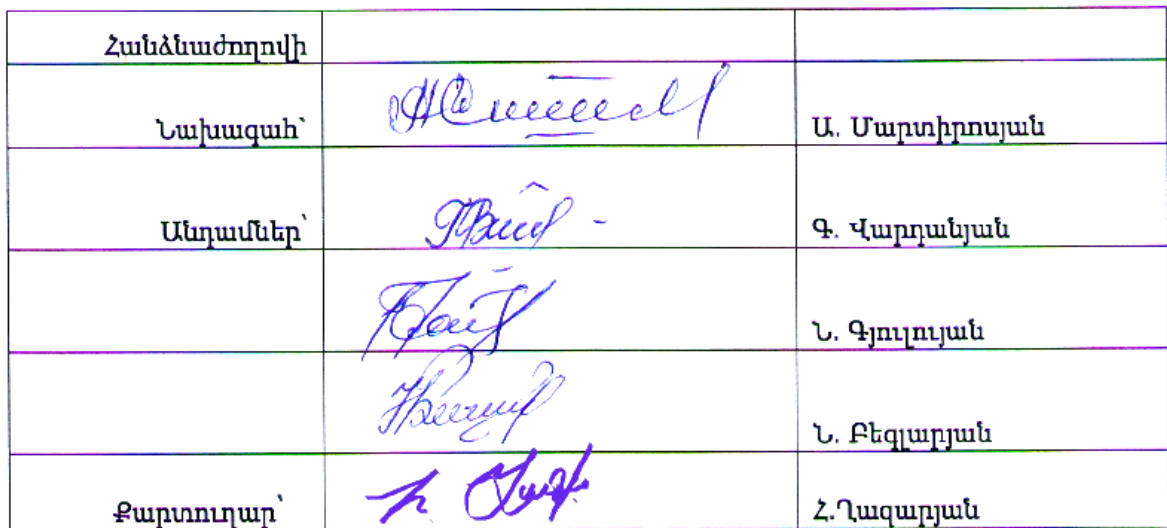 Հանձնաժողովի
Նախագահ՝ Ա. Մարտիրոսյան
Անդամներ՝ Գ. Վարդանյան
Ն. Գյուլույան
Ն. Բեգլարյան
Քարտուղար՝ Հ.Ղազարյան